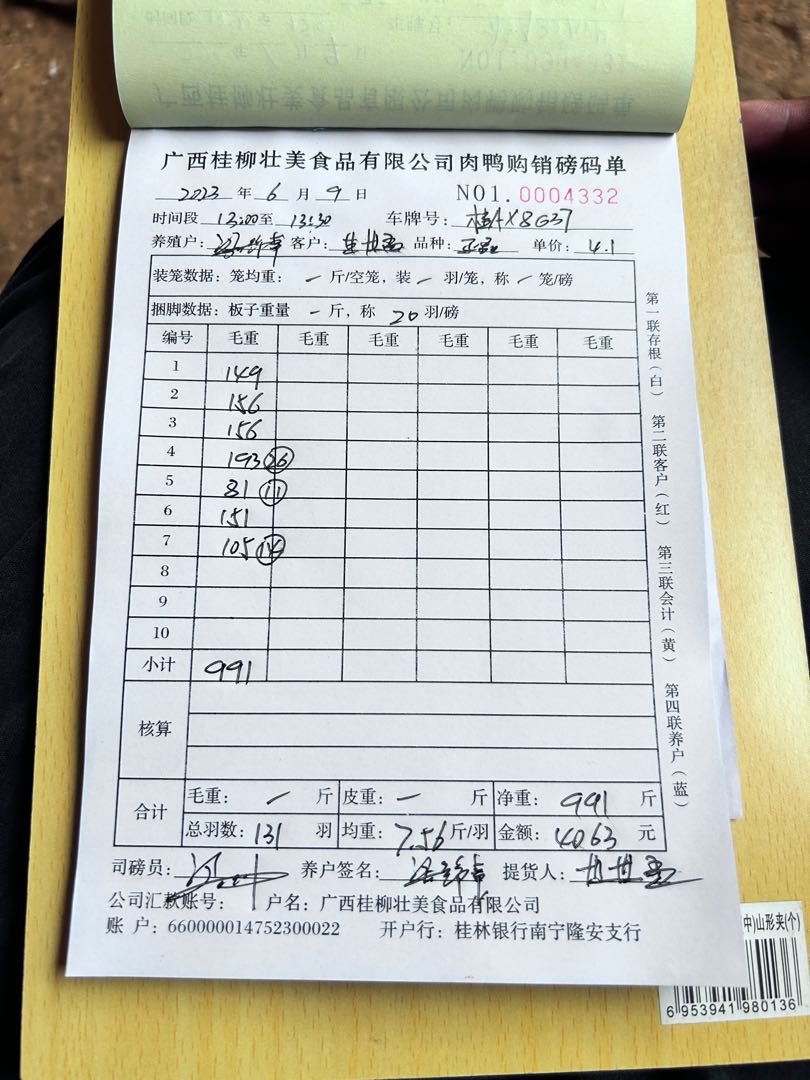 广西桂柳壮美食品有限公司肉鸭购销磅码单
2023 年 6 月 9 日 NO1.0004332
时间段 13:00至 13:30 车牌号: 桂AX8G37
养殖户: 客户: 品种: 单价: 4.1
装笼数据: 笼均重: — 斤/空笼, 装 — 羽/笼, 称 — 笼/磅
捆脚数据: 板子重量 — 斤, 称 20 羽/磅
编号 毛重 毛重 毛重 毛重 毛重 毛重
1 149
2 156
3 156
4 193 26
5 81 11
6 151
7 105 14
8
9
10
小计 991
核算
合计 毛重: — 斤 皮重: — 斤 净重: 991 斤
总羽数: 131 羽 均重: 7.56 斤/羽 金额: 4063 元
司磅员: 养户签名: 提货人:
公司汇款账号: 户名: 广西桂柳壮美食品有限公司
账 户: 660000014752300022 开户行: 桂林银行南宁隆安支行
第一联存根(白) 第二联客户(红) 第三联会计(黄) 第四联养户(蓝)
中)山形夹(个)
6 953941 980136